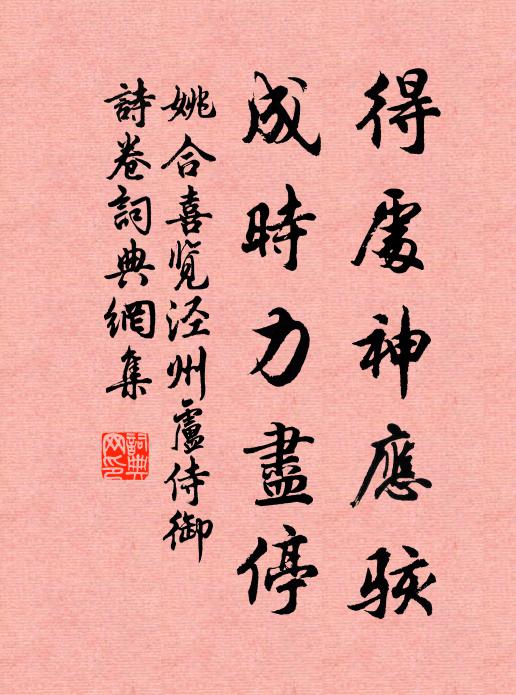 得處神應駭
成時力盡停
姚合喜覽泾州盧侍御
詩卷詞典網集
詞典
网印